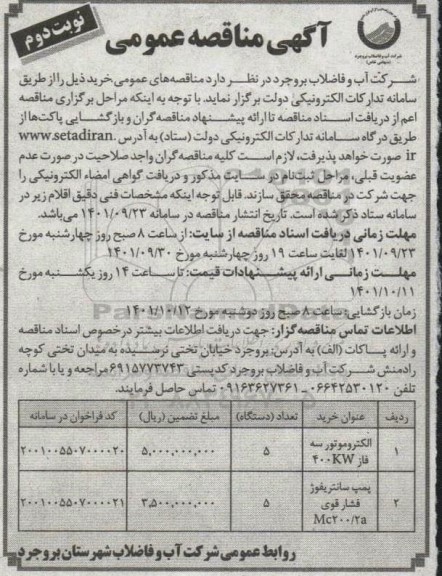 نوبت دوم
آگهی مناقصه عمومی
شرکت آب و فاضلاب بروجرد
(سهامی خاص)
شرکت آب و فاضلاب بروجرد در نظر دارد مناقصه‌های عمومی خرید ذیل را از طریق
سامانه تدارکات الکترونیکی دولت برگزار نماید. با توجه به اینکه مراحل برگزاری مناقصه
اعم از دریافت اسناد مناقصه تا ارائه پیشنهاد مناقصه‌گران و بازگشایی پاکت‌ها از
طریق درگاه سامانه تدارکات الکترونیکی دولت (ستاد) به آدرس www.setadiran.
ir صورت خواهد پذیرفت، لازم است کلیه مناقصه‌گران واجد صلاحیت در صورت عدم
عضویت قبلی، مراحل ثبت‌نام در سایت مذکور و دریافت گواهی امضاء الکترونیکی را
جهت شرکت در مناقصه محقق سازند. قابل توجه اینکه مشخصات فنی دقیق اقلام زیر در
سامانه ستاد ذکر شده است. تاریخ انتشار مناقصه در سامانه ۱۴۰۱/۰۹/۲۳ می‌باشد.
مهلت زمانی دریافت اسناد مناقصه از سایت: از ساعت ۸ صبح روز چهارشنبه مورخ
۱۴۰۱/۰۹/۲۳ لغایت ساعت ۱۹ روز چهارشنبه مورخ ۱۴۰۱/۰۹/۳۰
مهلت زمانی ارائه پیشنهادات قیمت: تا ساعت ۱۴ روز یکشنبه مورخ
۱۴۰۱/۱۰/۱۱
زمان بازگشایی: ساعت ۸ صبح روز دوشنبه مورخ ۱۴۰۱/۱۰/۱۲
اطلاعات تماس مناقصه‌گزار: جهت دریافت اطلاعات بیشتر در خصوص اسناد مناقصه
و ارائه پاکات (الف) به آدرس: بروجرد خیابان تختی نرسیده به میدان تختی کوچه
رادمنش شرکت آب و فاضلاب بروجرد کدپستی ۶۹۱۵۷۷۳۷۴۳ مراجعه و یا با شماره
تلفن ۰۶۶۴۲۵۳۰۱۲۰ - ۰۹۱۶۳۶۲۷۳۶۱ تماس حاصل فرمایند.
ردیف عنوان خرید تعداد (دستگاه) مبلغ تضمین (ریال) کد فراخوان در سامانه
۱ الکتروموتور سه فاز ۴۰۰KW ۵ ۵,۰۰۰,۰۰۰,۰۰۰ ۲۰۰۱۰۰۵۵۰۷۰۰۰۰۲۰
۲ پمپ سانتریفوژ فشار قوی Mc۲۰۰/۲a ۵ ۳,۵۰۰,۰۰۰,۰۰۰ ۲۰۰۱۰۰۵۵۰۷۰۰۰۰۲۱
روابط عمومی شرکت آب و فاضلاب شهرستان بروجرد